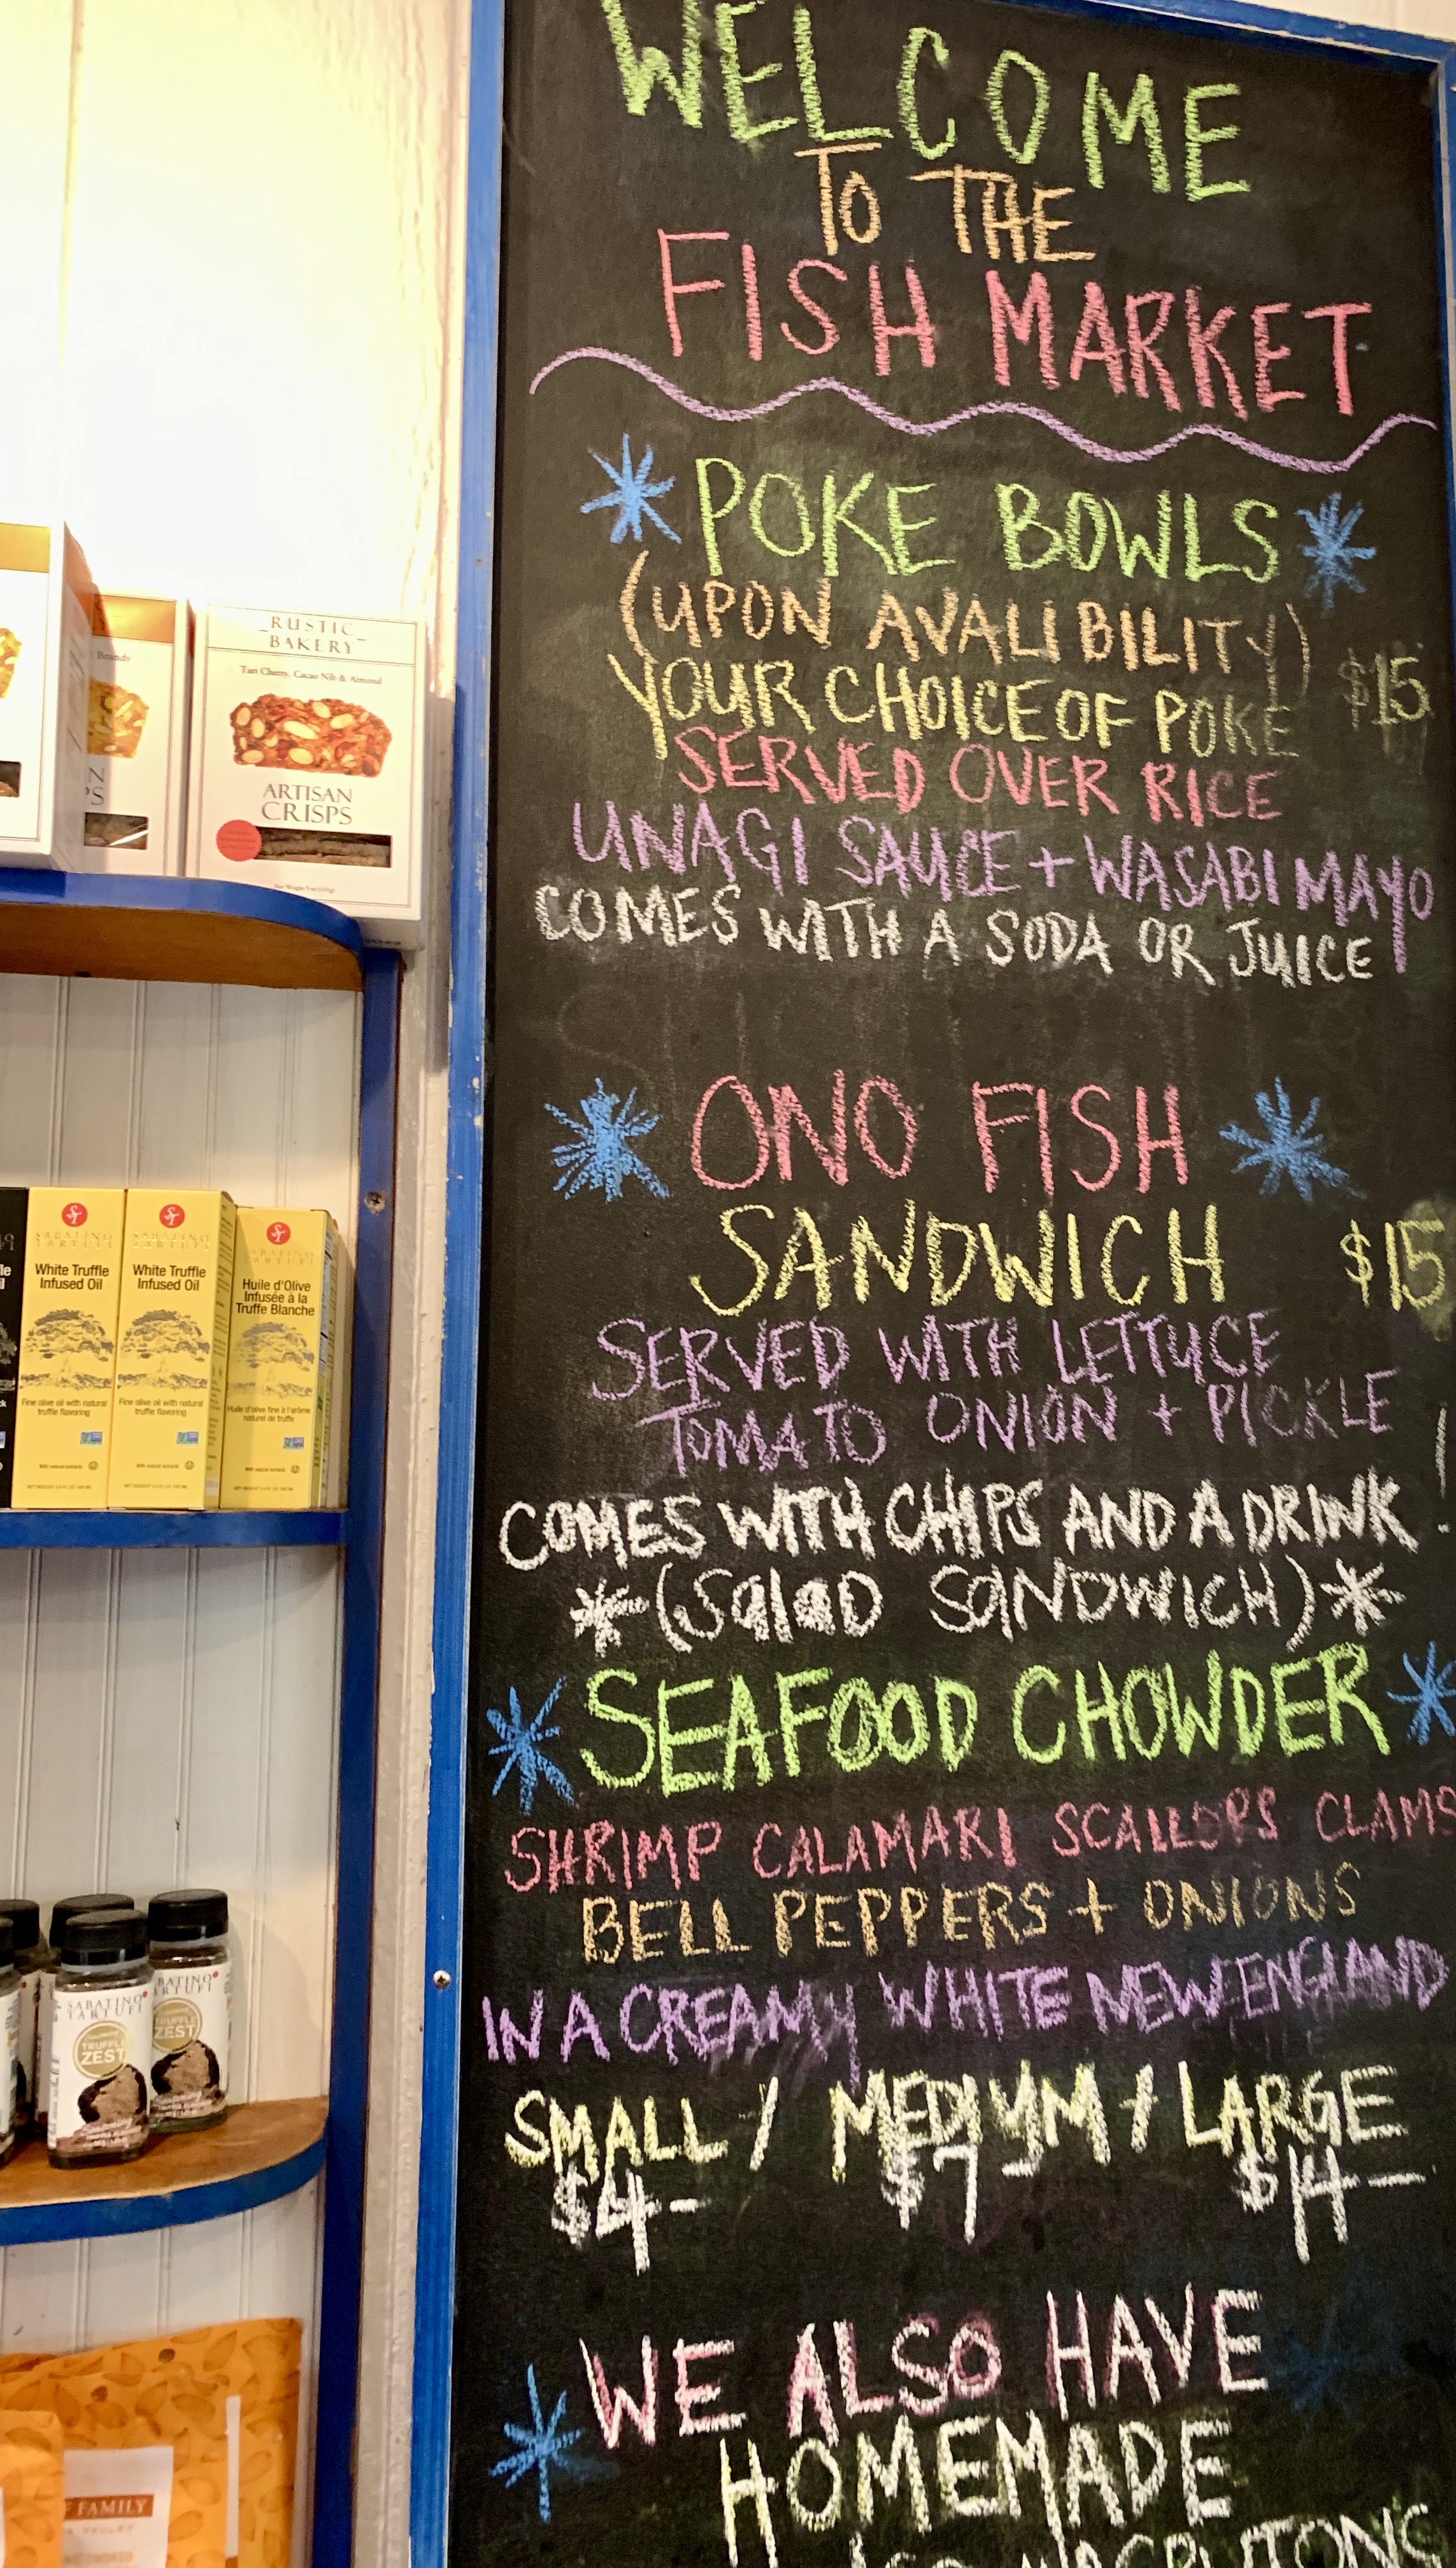 WELCOME
TO THE
FISH MARKET
POKE BOWLS
(UPON AVALIBILITY)
YOUR CHOICE OF POKE $15
SERVED OVER RICE
UNAGI SAUCE + WASABI MAYO
COMES WITH A SODA OR JUICE
ONO FISH
SANDWICH $15
SERVED WITH LETTUCE
TOMATO ONION + PICKLE
COMES WITH CHIPS AND A DRINK
*(SalaD SaNDWICH)*
SEAFOOD CHOWDER
SHRIMP CALAMARI SCALLOPS CLAMS
BELL PEPPERS + ONIONS
IN A CREAMY WHITE NEW ENGLAND
SMALL / MEDIUM / LARGE
$4- $7- $14-
WE ALSO HAVE
HOMEMADE
Brandy
RUSTIC
BAKERY
Tart Cherry, Cacao Nib & Almond
ARTISAN
CRISPS
SABATINO
TARTUFI
White Truffle
Infused Oil
Fine olive oil with natural
truffle flavoring
SABATINO
TARTUFI
White Truffle
Infused Oil
Fine olive oil with natural
truffle flavoring
SABATINO
TARTUFI
Huile d'Olive
Infusée à la
Truffe Blanche
Huile d'olive fine à l'arôme
naturel de truffe
SABATINO
TARTUFI
TRUFFLE
ZEST
TRUFFLE
ZEST
FAMILY